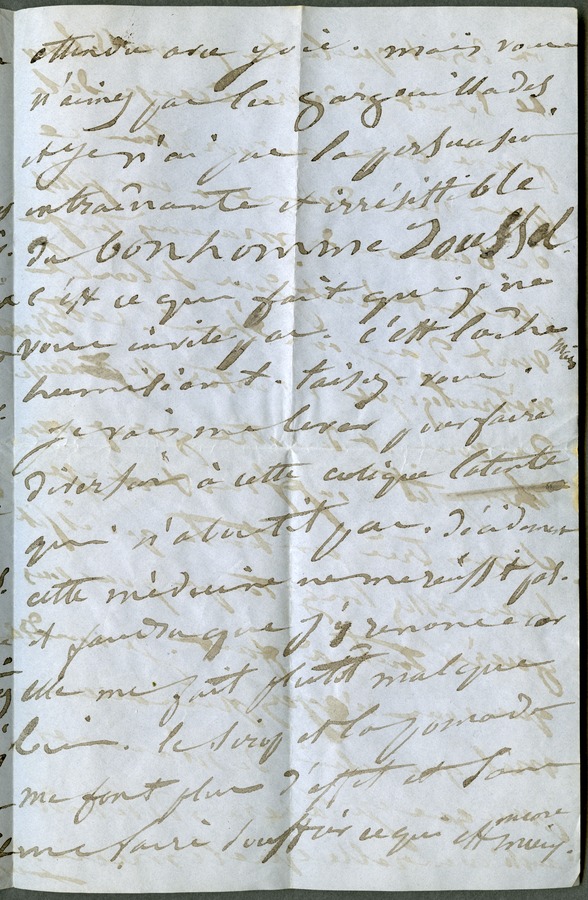 attendu avec joie. mais vous
n'aimez pas les gargouillades.
et je n'ai pas la persuasion
entrainante et irrésistible
du bonhomme Roussel.
c'est ce qui fait que je ne
vous invite pas. c'est lâche mais
humiliant. taisez-vous.
je vais me lever pour faire
diversion à cette colique latente
qui n'aboutit pas. décidément
cette médecine ne me réussit pas.
il faudra que j'y renonce car
elle me fait plutôt mal que
bien. le sirop et la pomade
me font plus d'effet et sans
me faire souffrir ce qui est encore mieux.